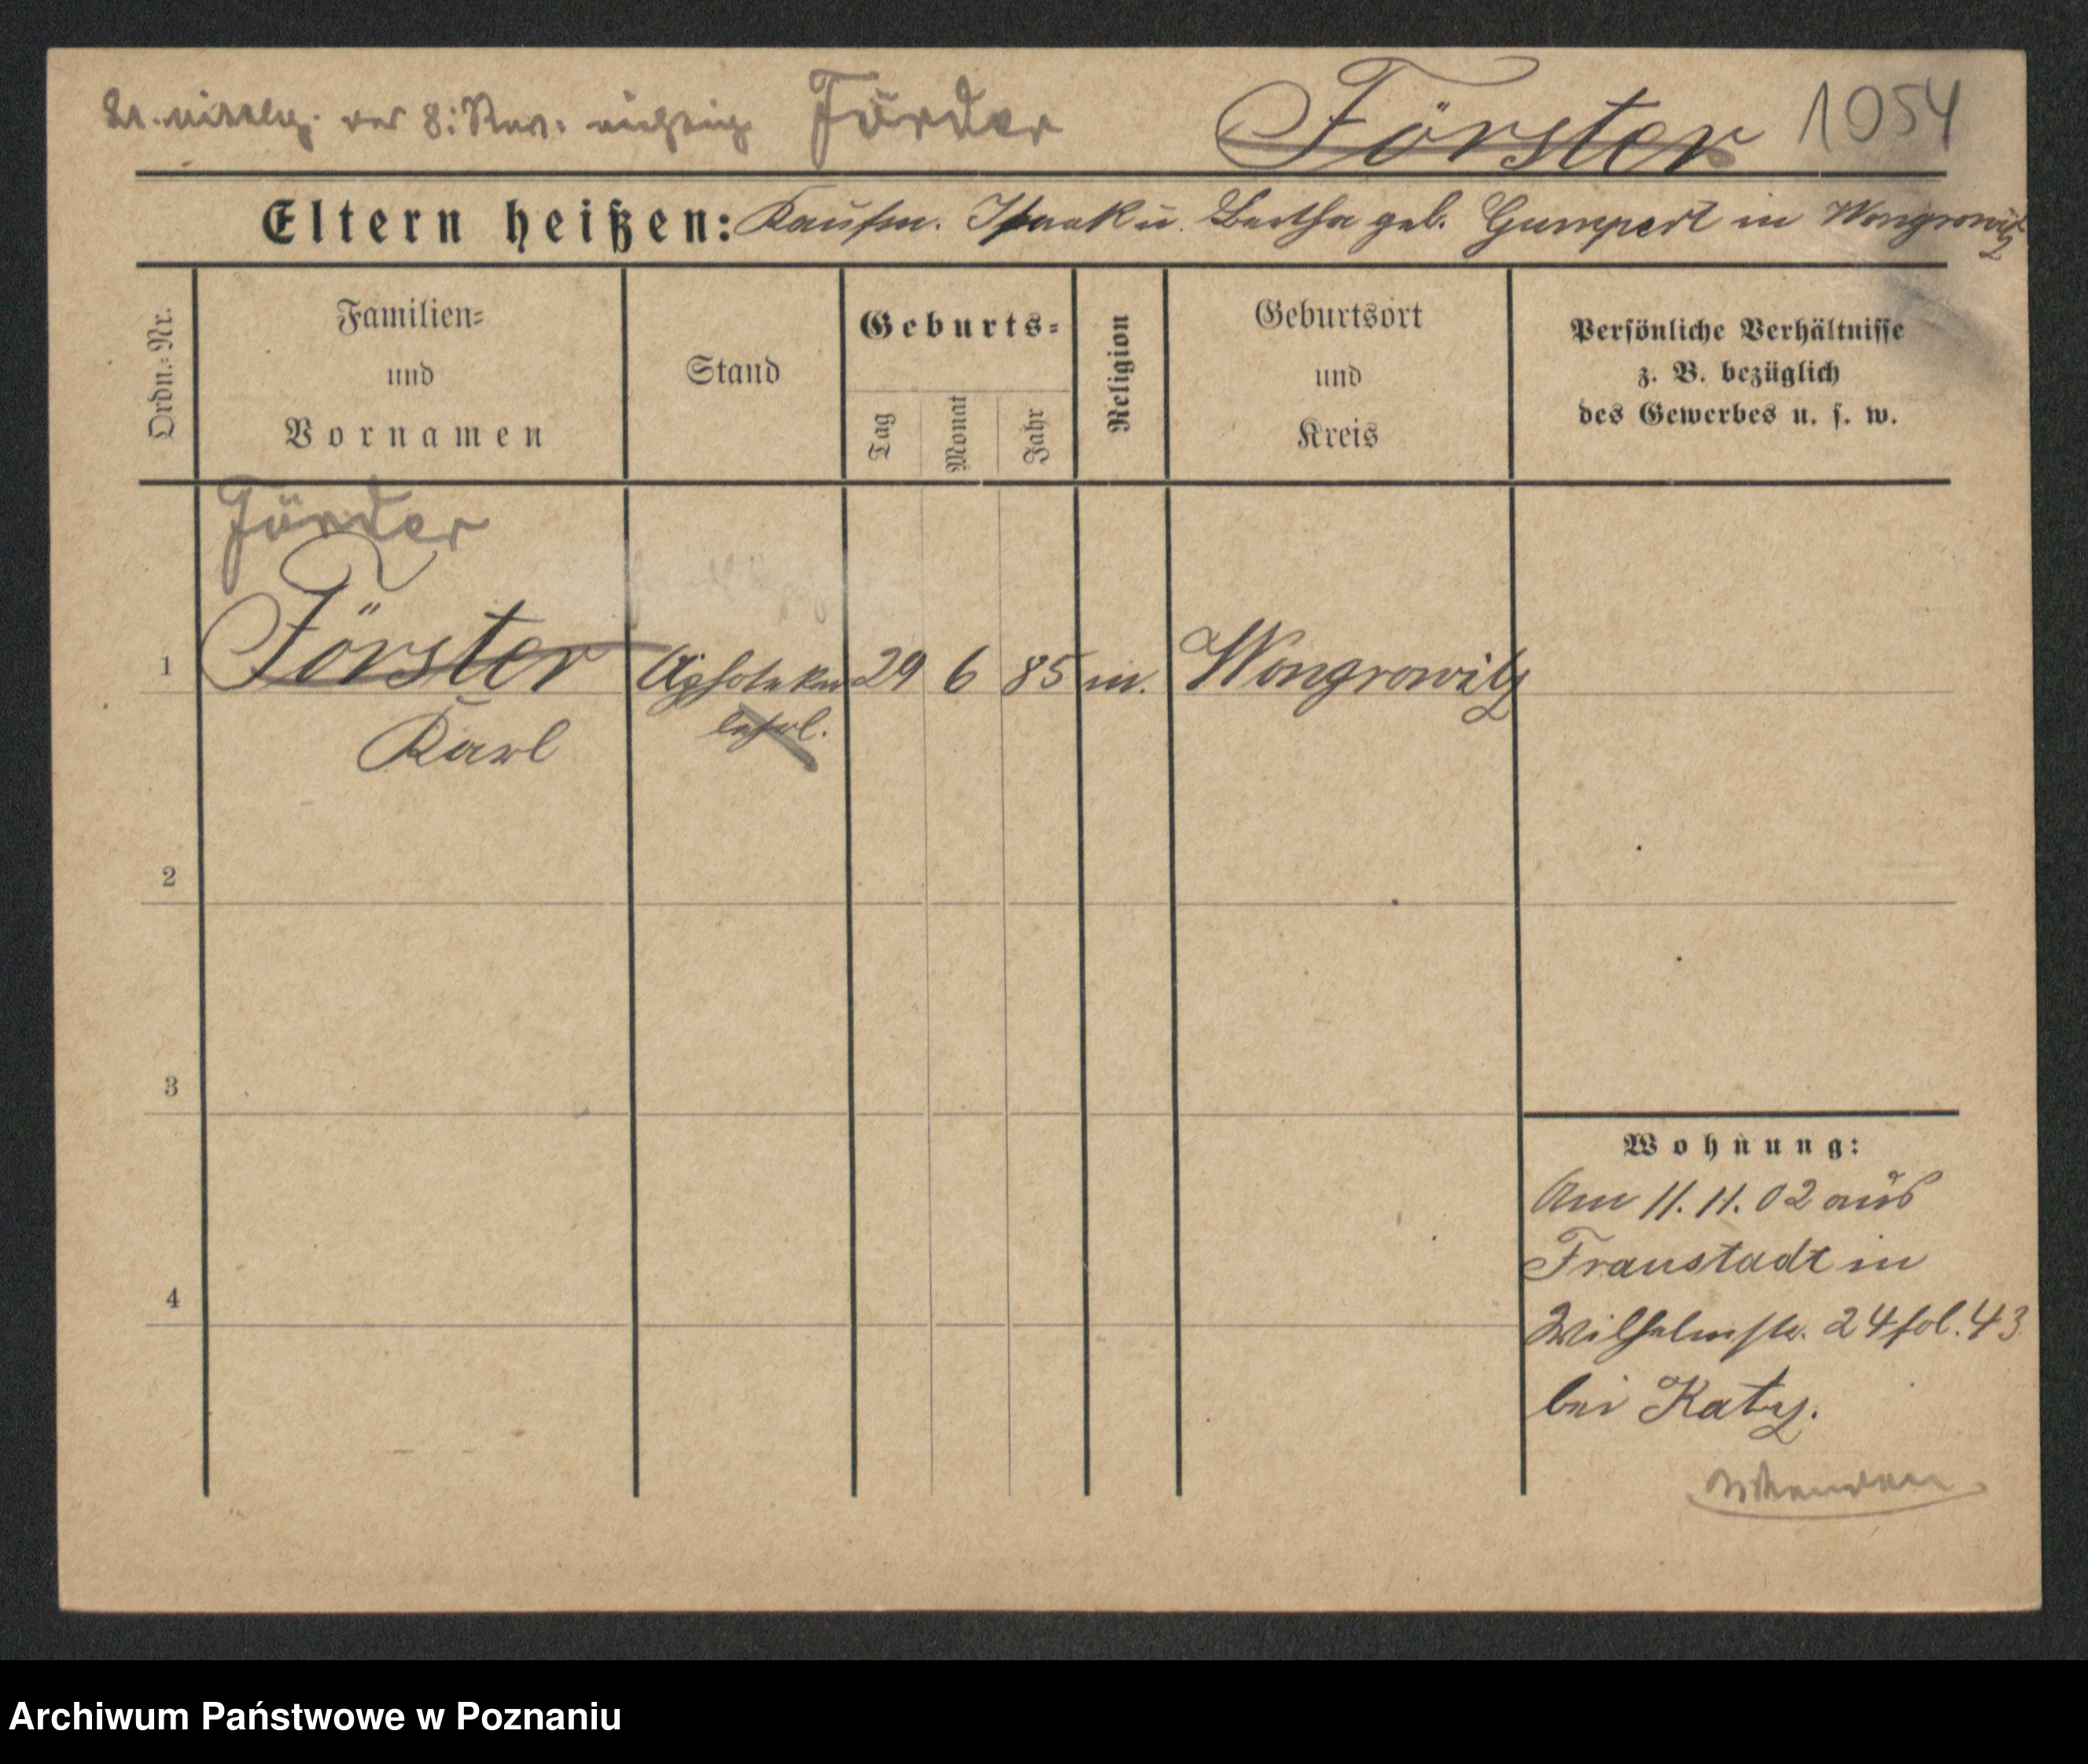 lt. Mittlg. des 8. Rev. richtig Förder Förster 1054
Eltern heißen: Kaufm. Isaak u. Bertha geb. Gumpert in Wongrowitz
Ordn.-Nr.
Familien-
und
Vornamen
Stand
Geburts-
Tag
Monat
Jahr
Religion
Geburtsort
und
Kreis
Persönliche Verhältnisse
z. B. bezüglich
des Gewerbes u. s. w.
Förder
1 Förster Apotheker 29 6 85 m. Wongrowitz
Karl lehrl.
2
3
4
Wohnung:
Am 11.11.02 aus
Fraustadt in
Wilhelmstr. 24 fol. 43
bei Katz.
Archiwum Państwowe w Poznaniu